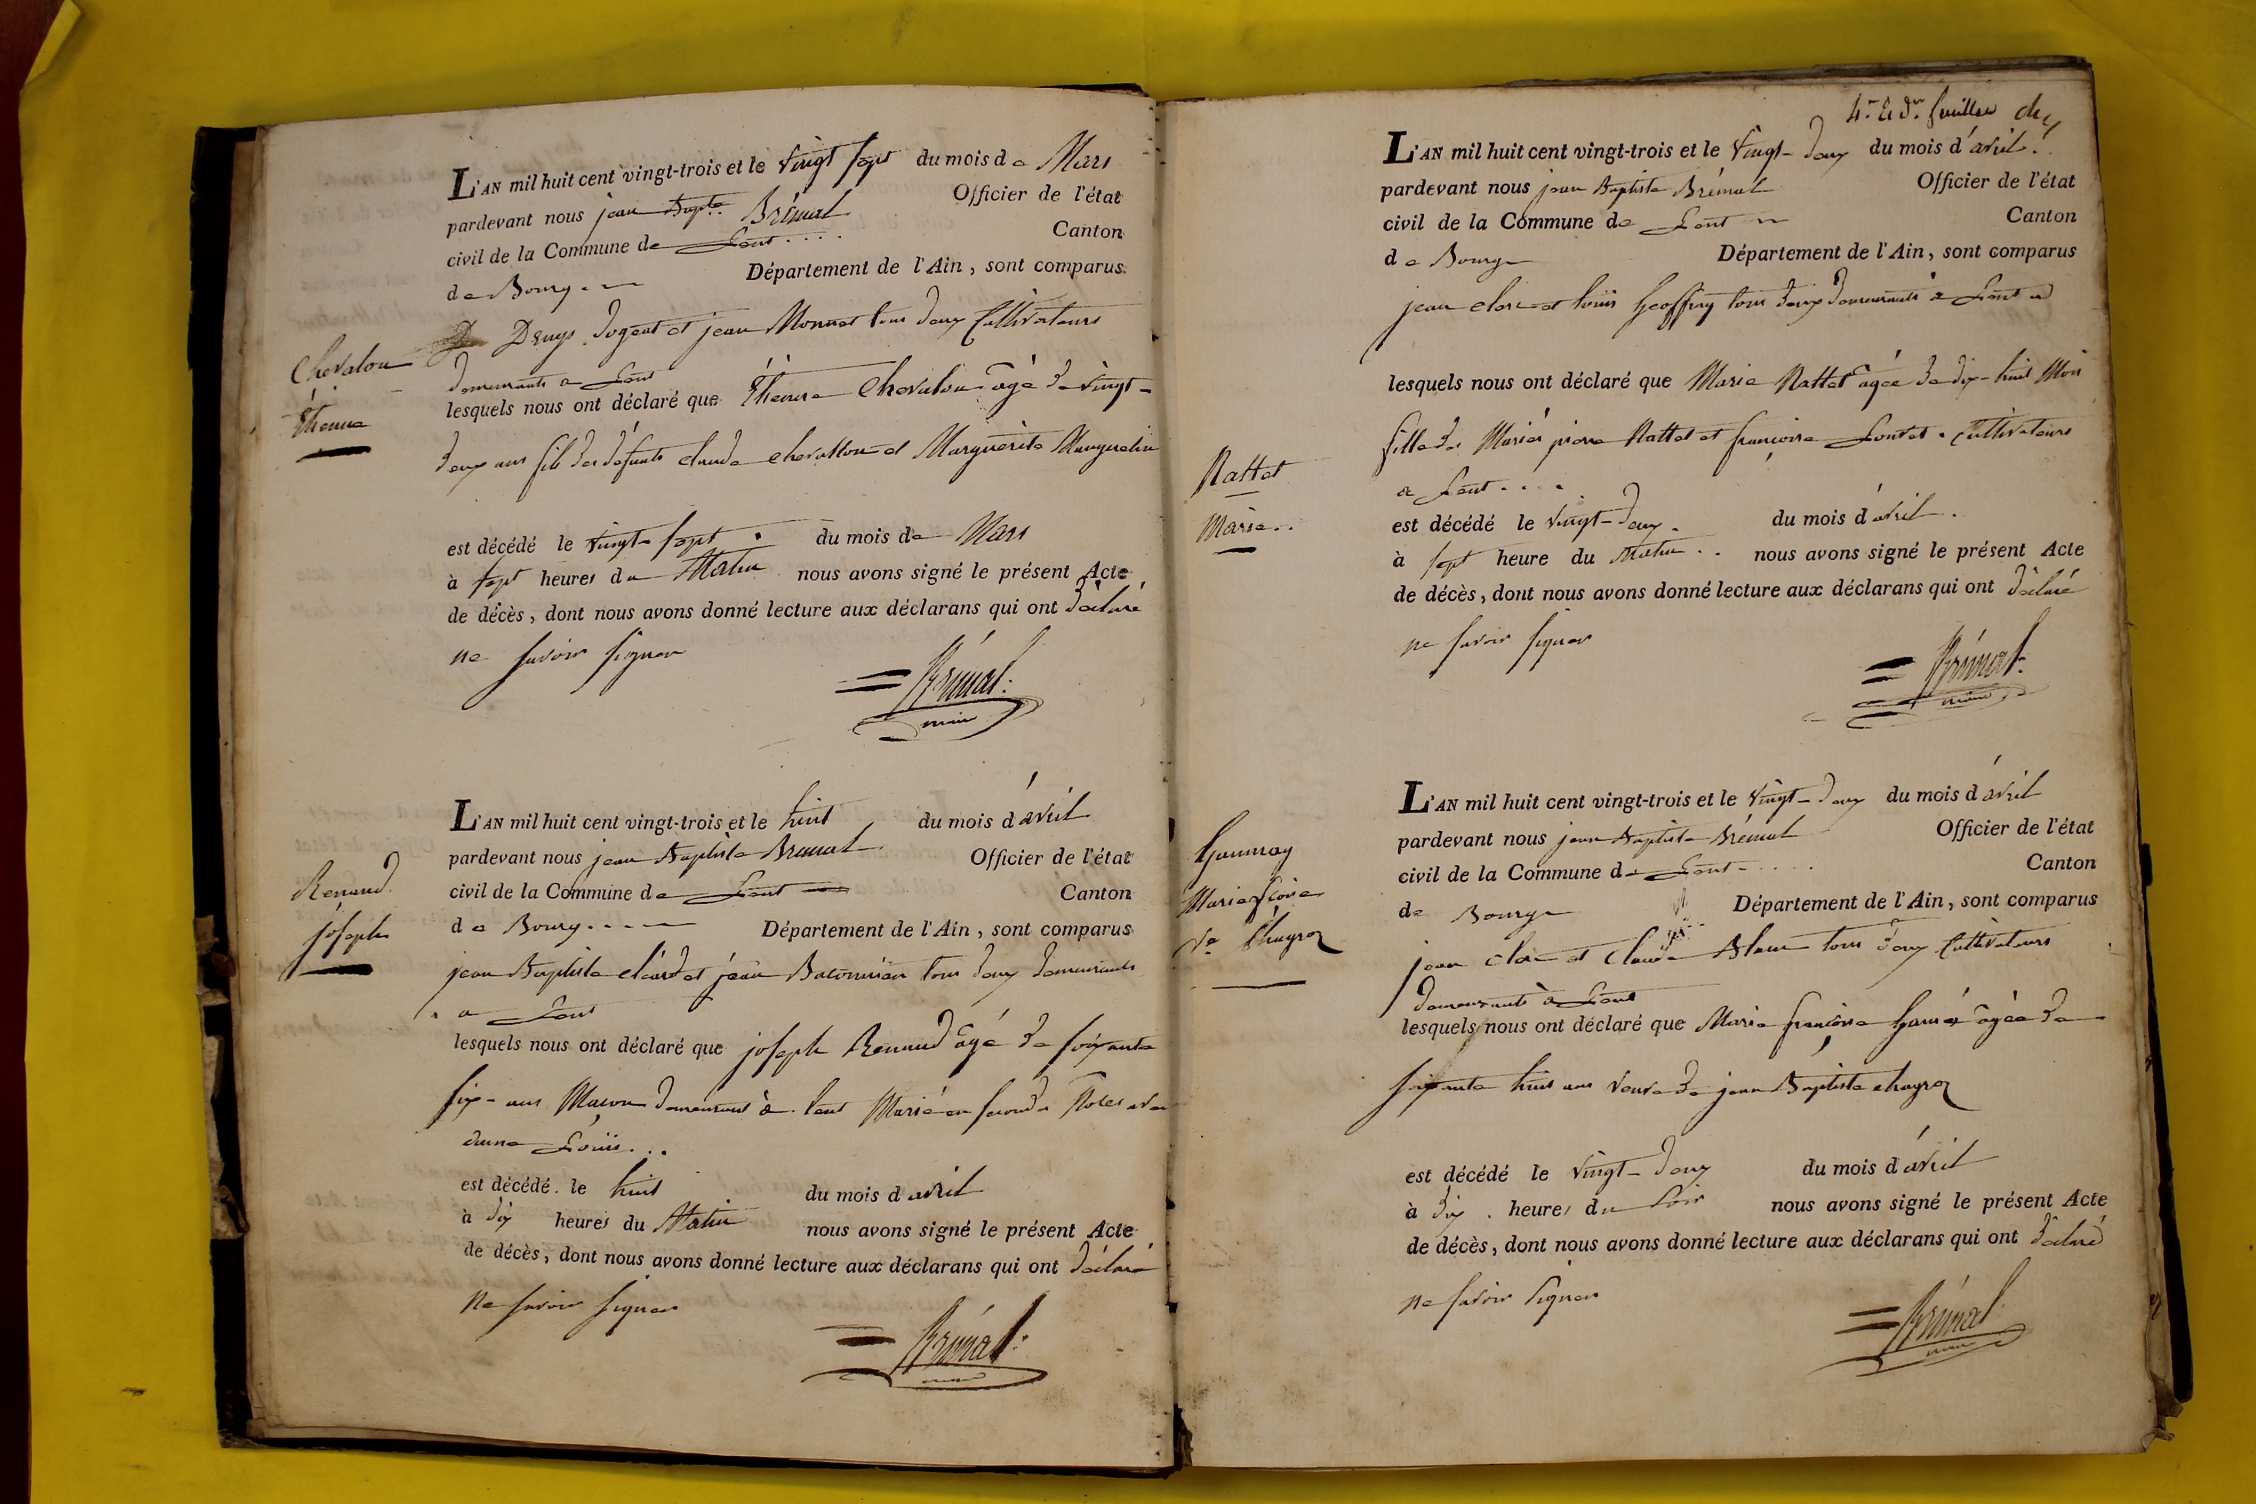 L'AN mil huit cent vingt-trois et le vingt sept du mois de Mars
pardevant nous jean Bapte. Brémal Officier de l'état
civil de la Commune de Lent .... Canton
de Bourg Département de l'Ain, sont comparus
Denys dogent et jean Monnet tous deux Cultivateurs
demeurants a Lent
Chevalon
Étienne
lesquels nous ont déclaré que Étienne Chevalon agé de vingt-
deux ans fils des défunts claude chevallon et Marguerite
est décédé le vingt-sept du mois de Mars
à sept heures du Matin nous avons signé le présent Acte
de décès, dont nous avons donné lecture aux déclarans qui ont déclaré
ne savoir signer
Brémal.
maire
L'AN mil huit cent vingt-trois et le huit du mois d'avril
pardevant nous jean Baptiste Bremal Officier de l'état
civil de la Commune de Lent Canton
de Bourg.... Département de l'Ain, sont comparus
Renaud
joseph
jean Baptiste cléard et jean tous deux demeurants
a Lent
lesquels nous ont déclaré que joseph Renaud agé de soixante
six ans Maçon demeurant à lent Marié en seconde Noces avec
Louis...
est décédé. le huit du mois d avril
à dix heures du Matin nous avons signé le présent Acte
de décès, dont nous avons donné lecture aux déclarans qui ont déclaré
ne savoir signer
Brémal.
maire
4e. et dr. feuillet
L'AN mil huit cent vingt-trois et le vingt-deux du mois d'avril.
pardevant nous jean Baptiste Brémal Officier de l'état
civil de la Commune de Lent Canton
de Bourg Département de l'Ain, sont comparus
jean clerc et louis Geoffray tous deux demeurants a Lent
lesquels nous ont déclaré que Marie Nattet agée de dix-huit Moi
fille des Mariés pierre Nattet et françoise Loutet. Cultivateurs
a Lent....
Nattet
Marie..
est décédé le vingt-deux. du mois d'avril.
à sept heure du Matin.. nous avons signé le présent Acte
de décès, dont nous avons donné lecture aux déclarans qui ont déclaré
ne savoir signer
Brémal.
maire
L'AN mil huit cent vingt-trois et le vingt-deux du mois d'avril
pardevant nous jean Baptiste Brémal Officier de l'état
civil de la Commune de Lent..... Canton
de Bourg Département de l'Ain, sont comparus
Marie fçoise
Ve Chayroz
jean clerc et Claude Blanc tous deux Cultivateurs
demeurants à Lent
lesquels nous ont déclaré que Marie françoise agée de
soixante huit ans veuve de jean Baptiste chayroz
est décédé le vingt-deux du mois d'avril
à dix. heures du soir nous avons signé le présent Acte
de décès, dont nous avons donné lecture aux déclarans qui ont déclaré
ne savoir signer
Brémal
maire